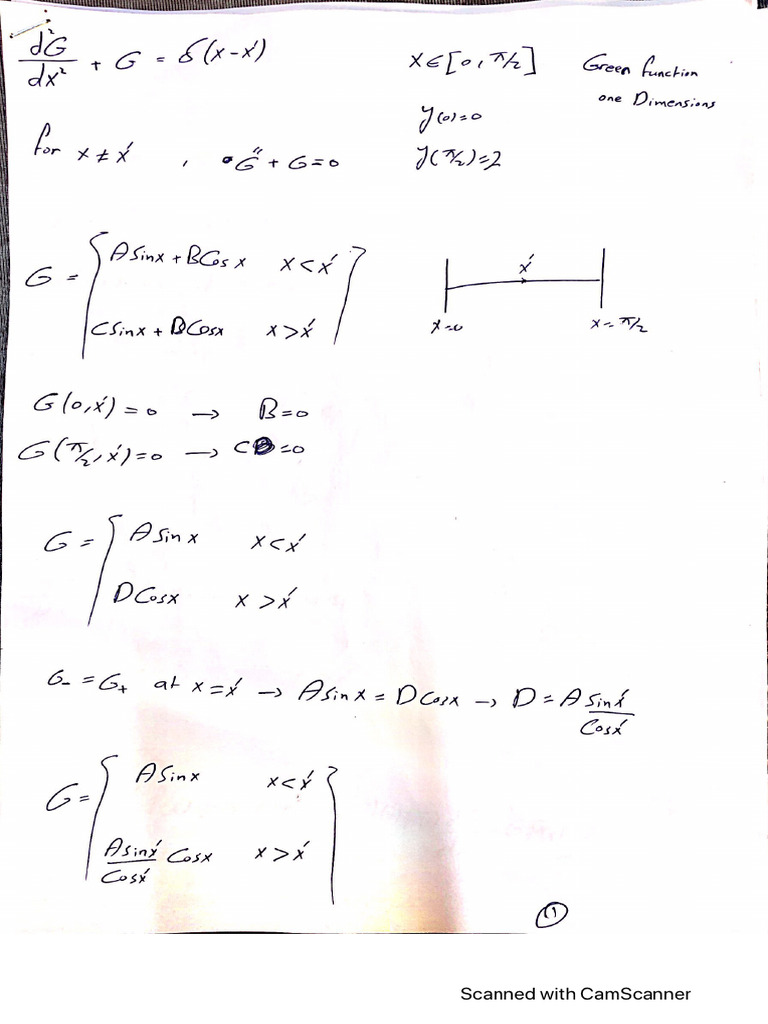 d²G/dx² + G = δ(x-x́)    x ∈ [0, π/2]    Green function
one Dimensions
y(0)=0
for x ≠ x́ , G̋ + G = 0    y(π/2)=2
G = { A sinx + B Cosx    x < x́
C sinx + D Cosx    x > x́ }
x́
x=0    x=π/2
G(0,x́) = 0 → B=0
G(π/2,x́)=0 → C=0
G = { A sinx    x < x́
D Cosx    x > x́
G₋ = G₊ at x=x́ → A sinx = D Cosx → D = A sinx́/Cosx́
G = { A sinx    x < x́
A sinx́/Cosx́ Cosx    x > x́ }
(1)
Scanned with CamScanner